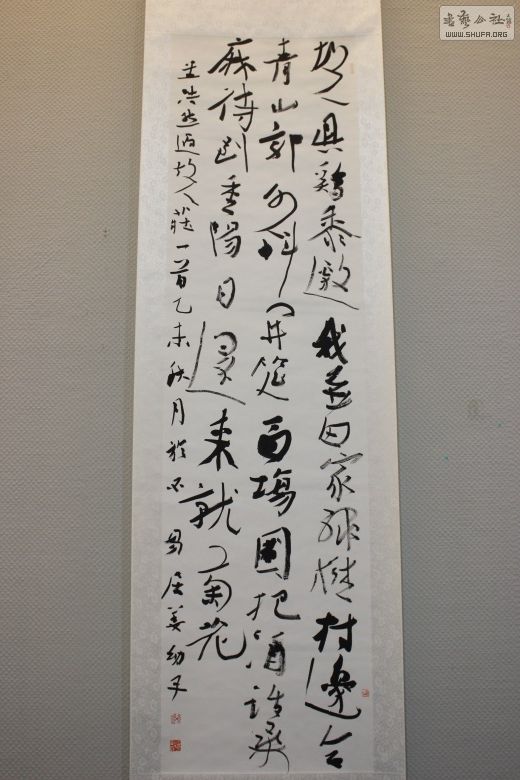 書藝公社
WWW.SHUFA.ORG
故人具鷄黍邀我至田家綠樹村邊合
青山郭外斜開筵面場圃把酒話桑
麻待到重陽日還來就菊花
孟浩然過故人莊一首乙未秋月於不易居姜幼